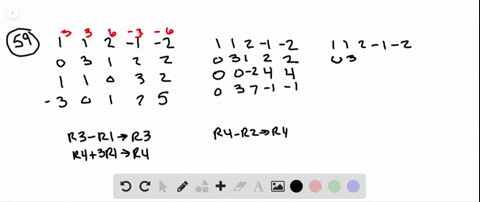 59
3 3 6 -3 -6
1 1 2 -1 -2
0 3 1 2 2
1 1 0 3 2
-3 0 1 2 5
R3-R1→R3
R4+3R1→R4
1 1 2 -1 -2
0 3 1 2 2
0 0 -2 4 4
0 3 7 -1 -1
R4-R2→R4
1 1 2 -1 -2
0 3
A